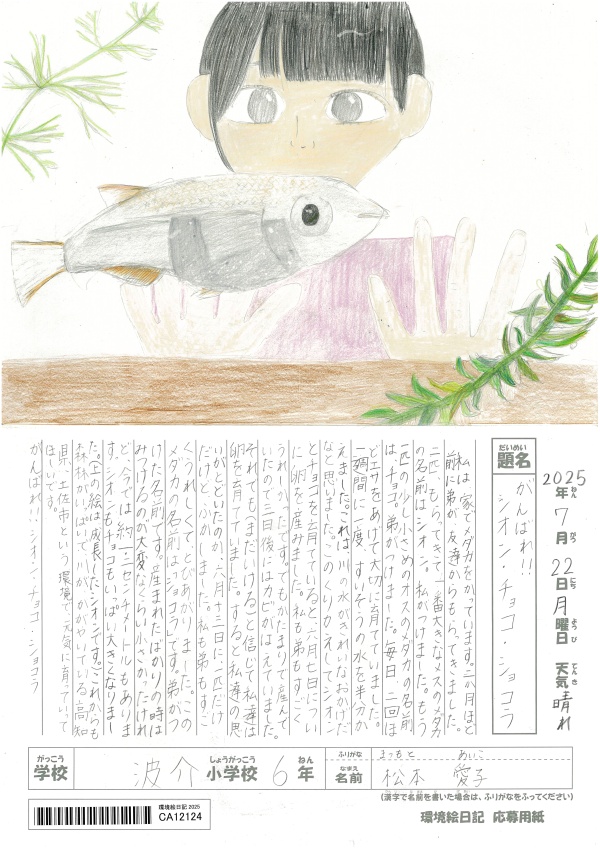 2025年7月22日月曜日 天気晴れ
ねん がつ にち ようび てんき
だいめい
題名
がんばれ!!
シオン・チョコ・ショコラ
私は家でメダカをかっています。二か月ほど
前に弟が友達からもらってきました。
二匹もらってきて、一番大きなメスのメダカ
の名前はシオン。私がつけました。もう
一匹の少し小さめのオスのメダカの名前
はチョコ。弟がつけました。毎日、二回ほ
どエサをあげて大切に育てていました。
一週間に一度、すいそうの水を半分か
えました。これは、川の水がきれいなおかげだ
なと思いました。このくりかえしでシオン
とチョコを育てていると六月七日につい
に卵を産みました。私も弟もすごく
うれしくてたまらないです。でもがたまりで産んで
いたので三日後にはカビがはえていました。
それでもまだいけると信じて私達は
卵を育てていました。すると私達の思
いがとどいたのか、六月十三日に一匹だけ
だけどふかしました。私も弟もすご
くうれしくてとびあがりました。この
メダカの名前はショコラです。弟がつ
けた名前です。産まれたばかりの時は
みつけるのが大変なくらい小さかったけれ
ど、今では約一センチメートルもありま
す。シオンもチョコもいっぱい大きくなりまし
た。上の絵は成長したシオンです。これからも
森林がいっぱいで川がかがやいている高知
県、土佐市という環境で元気に育っていって
ほしいです。
がんばれ!!シオン・チョコ・ショコラ
がっこう
学校
波介
しょうがっこう ねん
小学校 6年
ふりがな
まつもと あいこ
なまえ
名前
松本 愛子
(漢字で名前を書いた場合は、ふりがなをふってください)
環境絵日記 2025
CA12124
環境絵日記 応募用紙